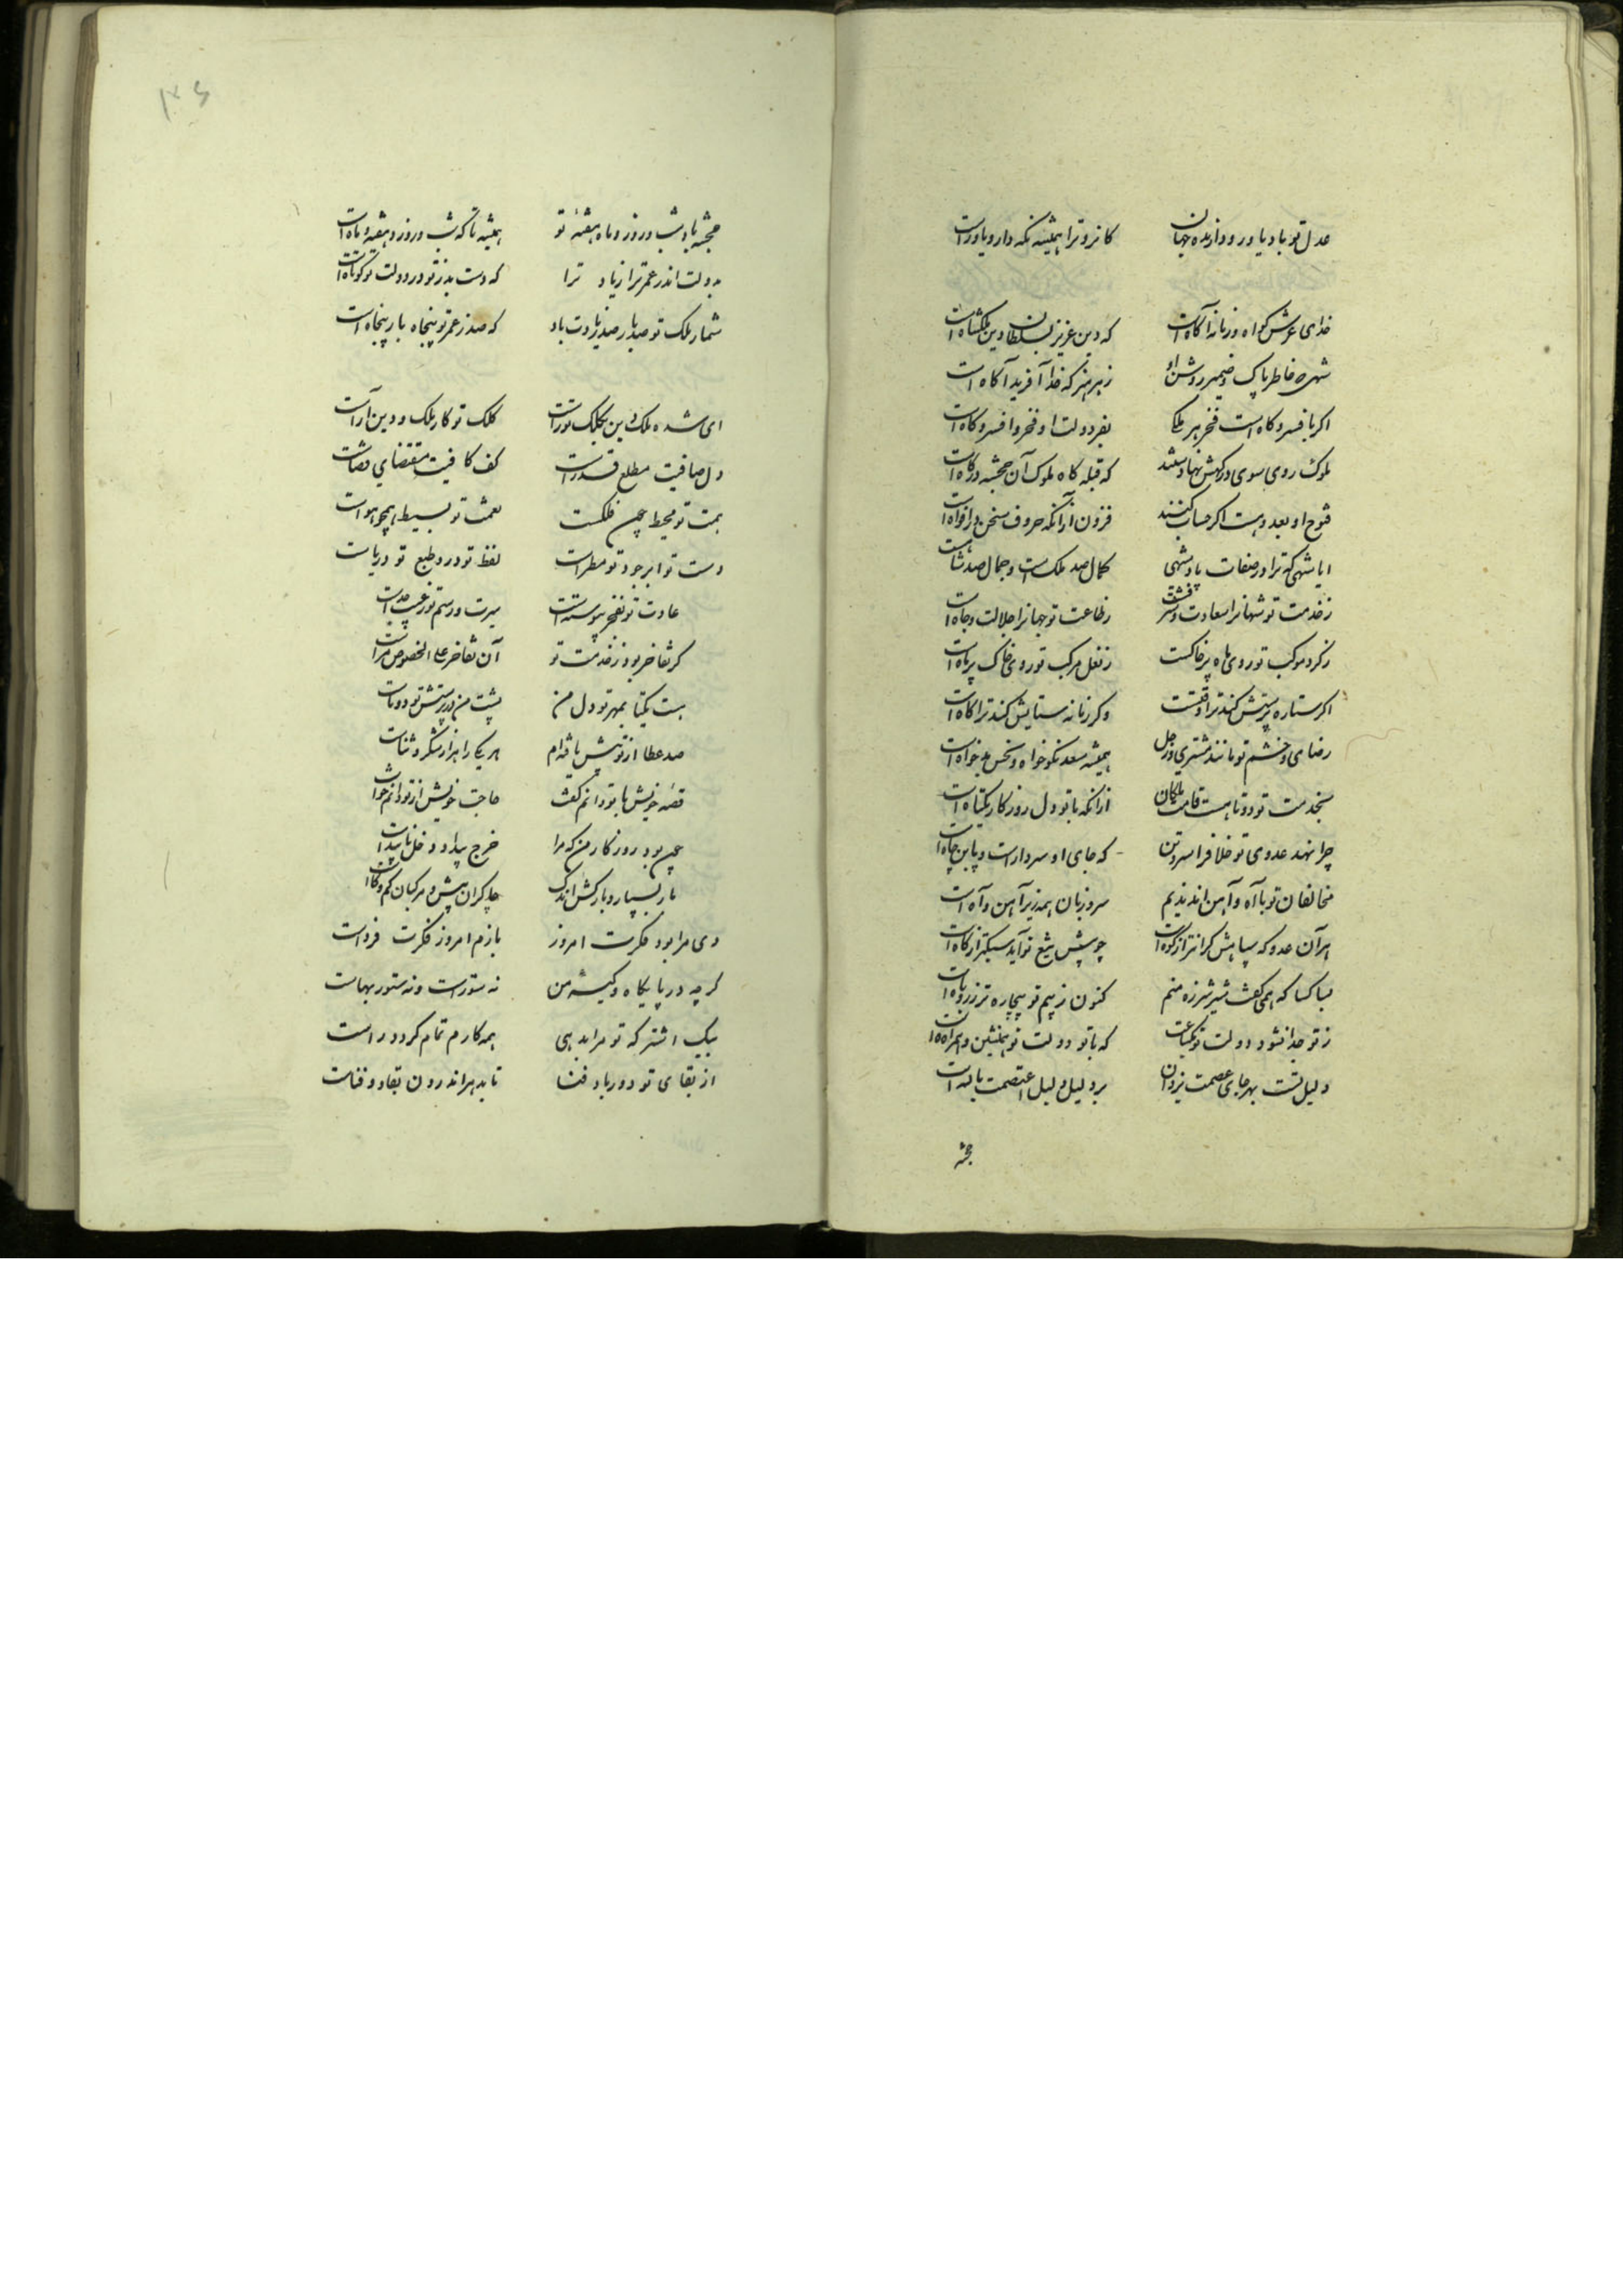 عدل تو باد یاور و دارنده جهان کایزد ترا همیشه نکه دار و یاورست
خدای عرش کواه و زمانه آکاهست که دین عزیز بسلطان دین ملکشاهست
شهی که خاطر پاک و ضمیر روشن او ز هر هنر که خدا آفرید آکاهست
اکر بافسر و کاهست فخر هر ملکی بفر دولت او فخر افسر و کاهست
ملوک روی سوی درکهش نهادستند که قبله کاه ملوک آن خجسته درکاهست
فتوح او بعدد هست اکر حساب کنند فزون از آنکه حروف سخن در افواهست
ایا شهی که ترا در صفات پادشهی کمال صد ملکست و جمال صد شاهست
ز خدمت تو شهانرا سعادت و شرفست ز طاعت تو جهانرا جلالت و جاهست
ز کرد موکب تو روی ماه پر خاکست ز نعل مرکب تو روی خاک پر ماهست
اکر ستاره پرستش کند ترا وقتست وکر زمانه ستایش کند ترا کاهست
رضای و خشم تو مانند مشتری و زحل همیشه سعد نکوخواه و نحس بدخواهست
بخدمت تو دوتا هست قامت ملکان از آنکه با تو دل روزکار یکتاهست
چرا نهد عدوی تو خلاف را سر و تن که جای او سر دارست و یا بن چاهست
مخالفان تو با آه و آهن اند ندیم سر و زبان همه زیر آهن و آهست
هر آن عدو که سپاهش کرانتر از کوهست چو پیش تیغ تو آید سبکتر از کاهست
بسا کسا که همی کفت شیر شرزه منم کنون ز بیم تو بیچاره تر ز روباهست
ز تو جدا نشود دولت تو یکساعت که با تو دولت تو همنشین و همراهست
دلیل تست بهر جای عصمت یزدان برد لیل دلیل اعتصمت بالله است
خجسته
خجسته باد شب و روز و ماه و هفته تو همیشه تا که شب و روز و هفته و ماهست
بدولت اندر عمر ترا زیاد ترا که دست بد ز تو و در دولت تو کوتاهست
شمار ملک تو صد بار صد زیادت باد که صد ز عمر تو پنجاه بار پنجاهست
ای شده ملک و دین بکلک تو راست کلک تو کار ملک و دین آراست
دل صافیت مطلع قدرست کف کافیت مقتضای قضاست
همت تو محیط چون فلکست نعمت تو بسیط همچو هواست
دست تو ابر و جود تو مطرست لفظ تو در و طبع تو دریاست
عادت تو بفخر پیوستست سیرت و رسم تو ز عیب جداست
کر تفاخر بود ز خدمت تو آن تفاخر علی الخصوص مراست
هست یکتا بمهر تو دل من پشت من در پرستش تو دوتاست
صد عطا از تو بیش یافته‌ام هر یکی را هزار شکر و ثناست
قصه خویش با تو دانم کفت حاجت خویش از تو دانم خواست
چون بود روزکار من که مرا خرج پیدا و دخل ناپیداست
بار بسیار و بارکش اندک چاکران بیش و مرکبان کم و کاست
دی مرا بود فکرت امروز بازم امروز فکرت فرداست
کر چه در پایکاه و کیسه من نه ستورست و نه ستور بهاست
بیک اشتر که تو مرا بدهی همه کارم تمام کردد راست
از بقای تو دور باد فنا تا بدهر اندرون بقا و فناست